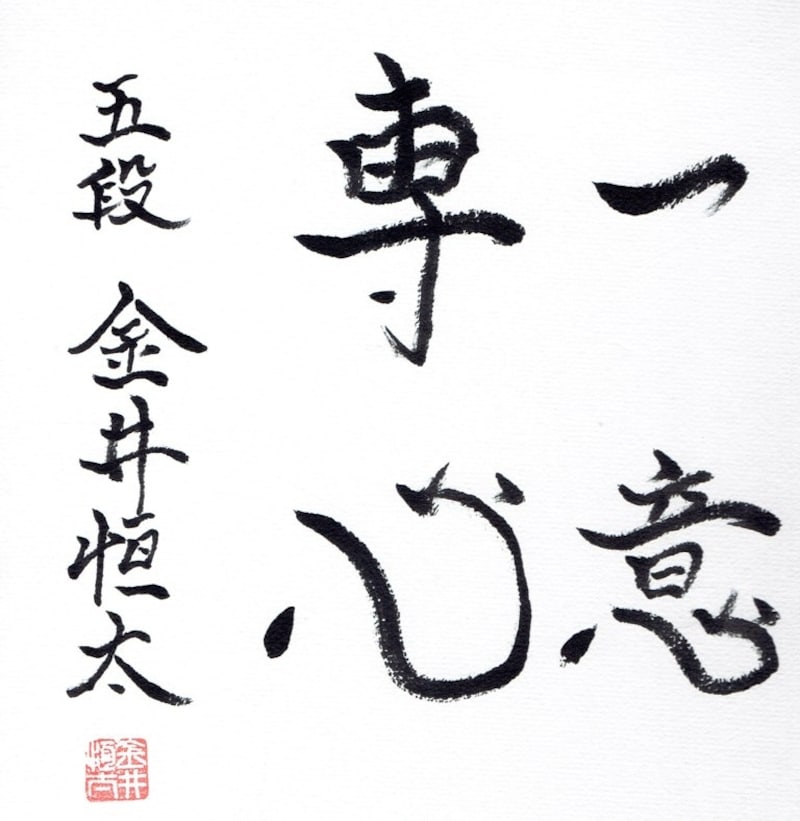 一意
専心
五段 金井恒太
金井
恒太